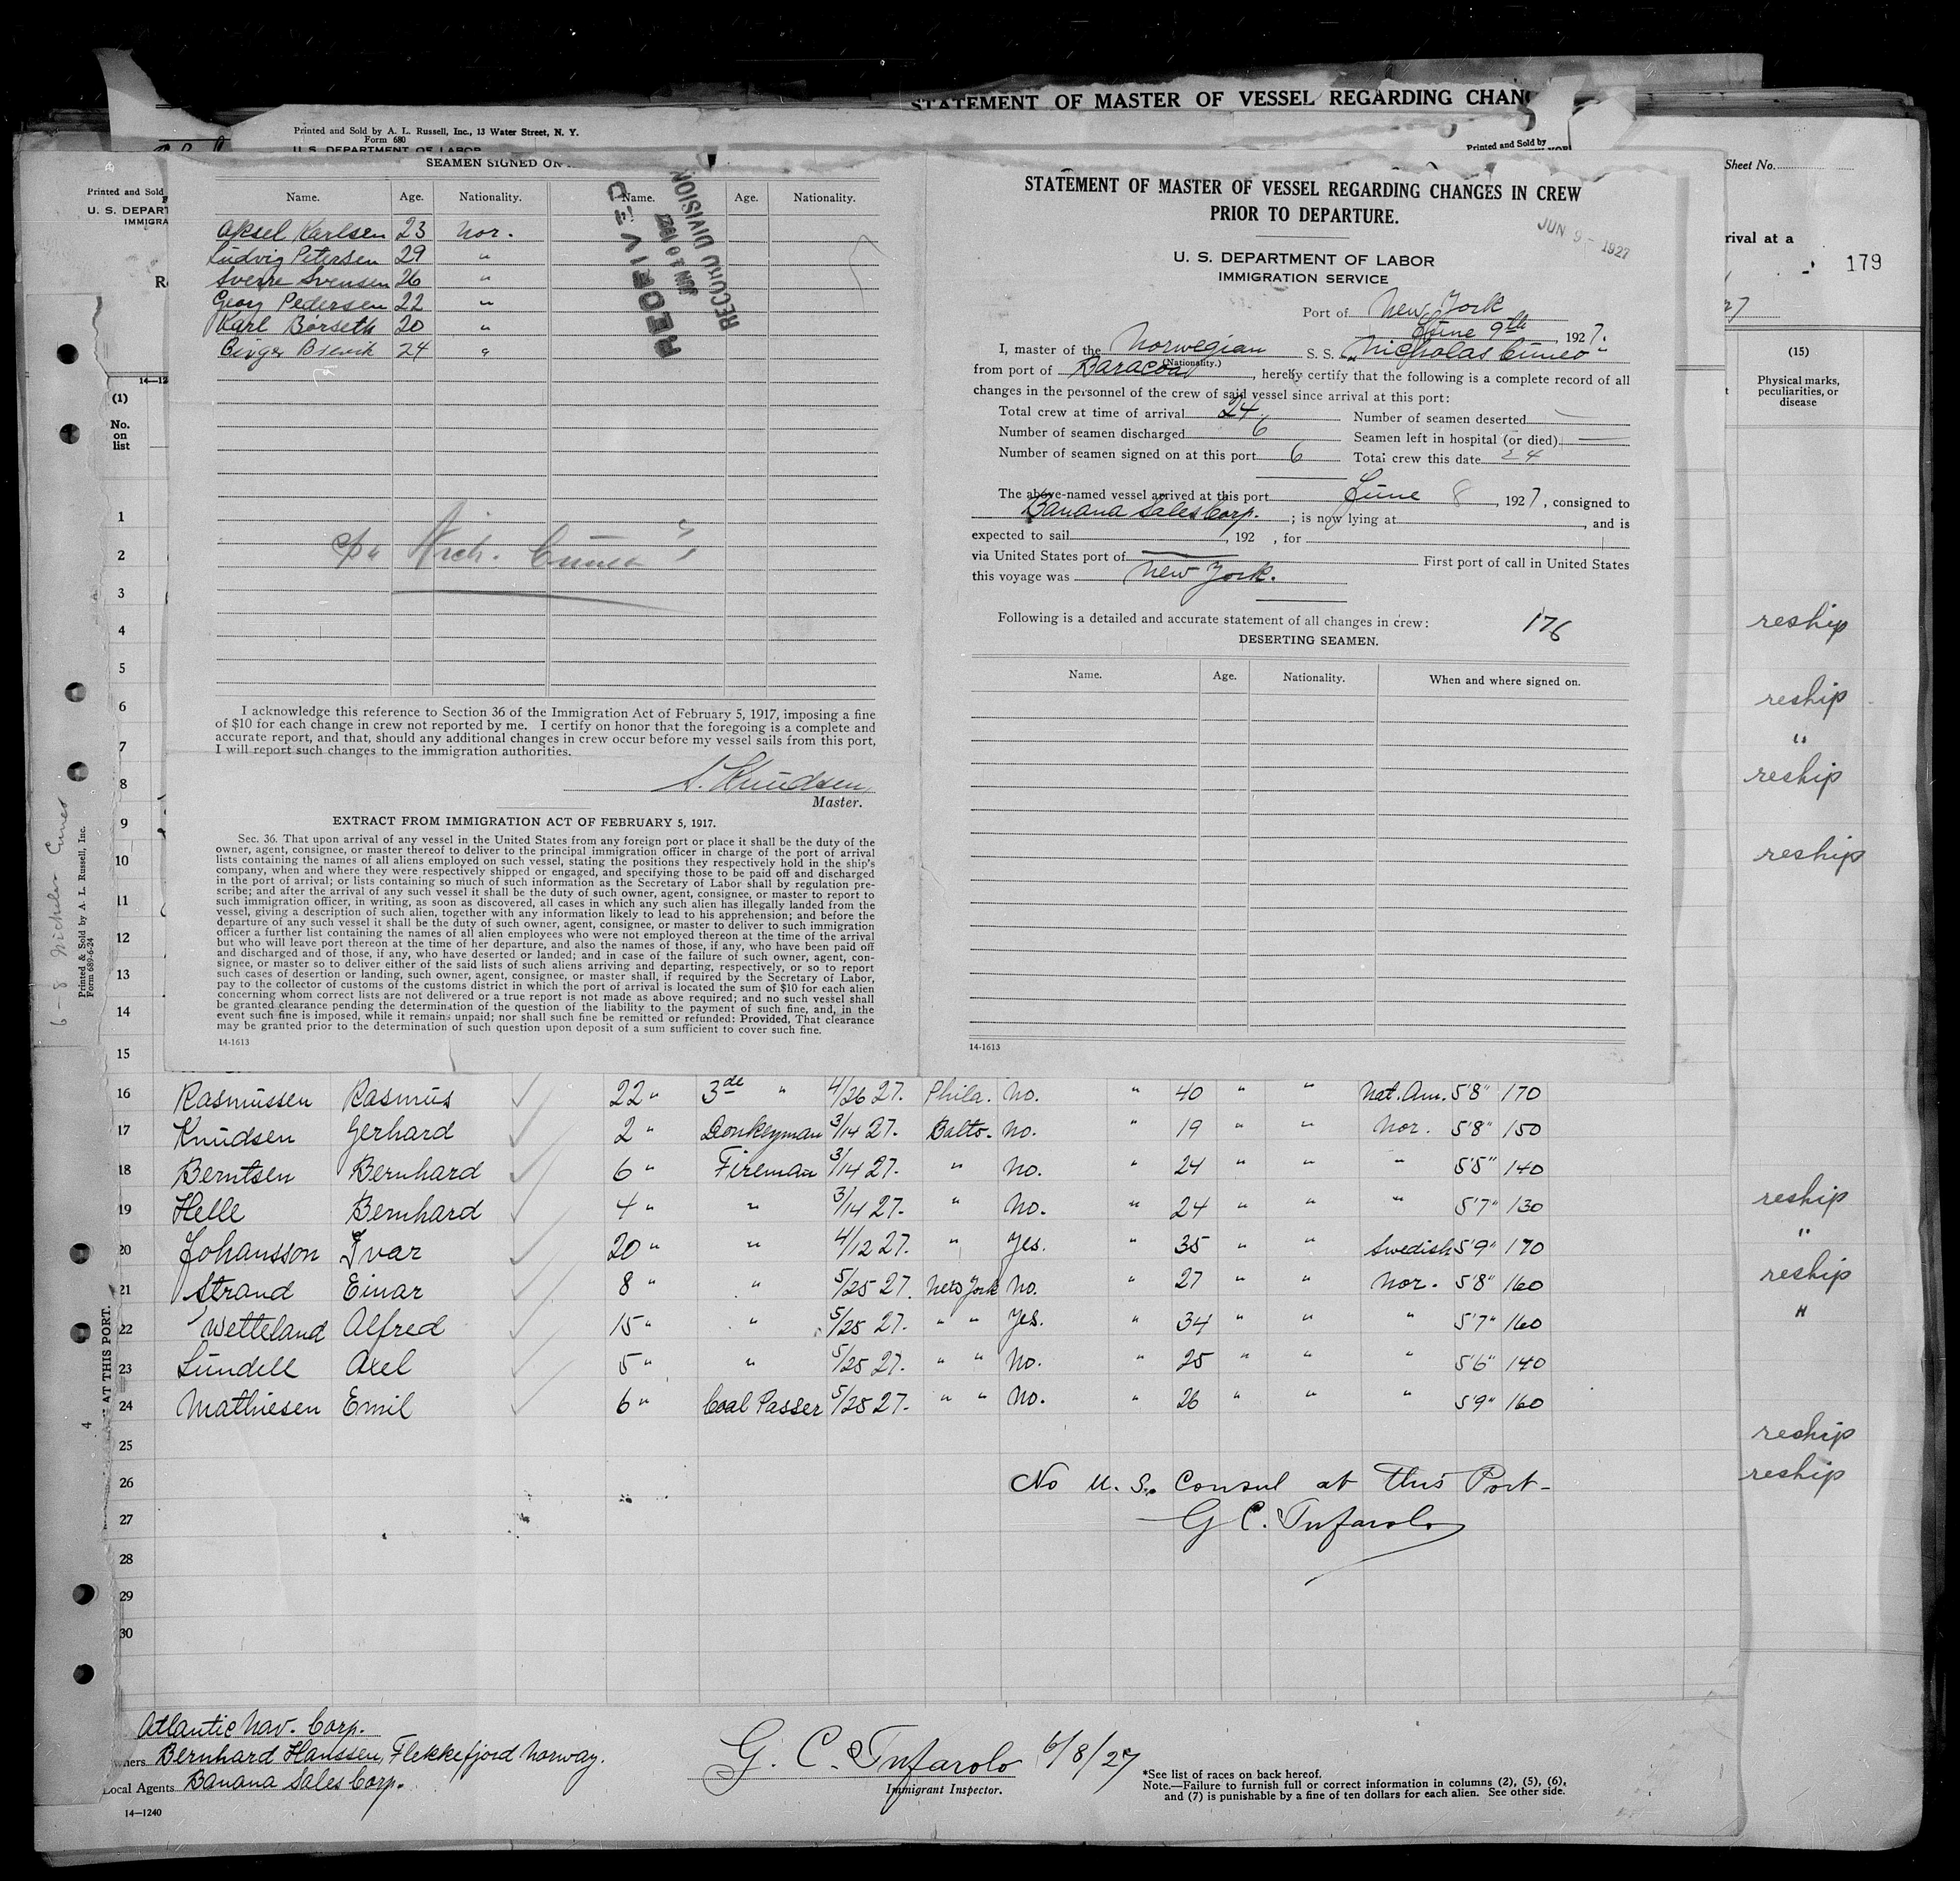 STATEMENT OF MASTER OF VESSEL REGARDING CHANG
Printed and Sold by A. L. Russell, Inc., 13 Water Street, N. Y.
Form 680
U. S. DEPARTMENT OF LABOR
Printed and Sold by
Sheet No.
Printed and Sold
U. S. DEPART
IMMIGRA
rival at a
179
SEAMEN SIGNED ON
Name. Age. Nationality. Name. Age. Nationality.
Aksel Karlsen 23 Nor.
Ludvig Petersen 29 "
Sverre Svensen 26 "
Georg Pedersen 22 "
Karl Børseth 20 "
24 "
RECEIVED
JUN 10 1927
RECORD DIVISION
I acknowledge this reference to Section 36 of the Immigration Act of February 5, 1917, imposing a fine
of $10 for each change in crew not reported by me. I certify on honor that the foregoing is a complete and
accurate report, and that, should any additional changes in crew occur before my vessel sails from this port,
I will report such changes to the immigration authorities.
Knudsen
Master.
EXTRACT FROM IMMIGRATION ACT OF FEBRUARY 5, 1917.
Sec. 36. That upon arrival of any vessel in the United States from any foreign port or place it shall be the duty of the
owner, agent, consignee, or master thereof to deliver to the principal immigration officer in charge of the port of arrival
lists containing the names of all aliens employed on such vessel, stating the positions they respectively hold in the ship's
company, when and where they were respectively shipped or engaged, and specifying those to be paid off and discharged
in the port of arrival; or lists containing so much of such information as the Secretary of Labor shall by regulation pre-
scribe; and after the arrival of any such vessel it shall be the duty of such owner, agent, consignee, or master to report to
such immigration officer, in writing, as soon as discovered, all cases in which any such alien has illegally landed from the
vessel, giving a description of such alien, together with any information likely to lead to his apprehension; and before the
departure of any such vessel it shall be the duty of such owner, agent, consignee, or master to deliver to such immigration
officer a further list containing the names of all alien employees who were not employed thereon at the time of the arrival
but who will leave port thereon at the time of her departure, and also the names of those, if any, who have been paid off
and discharged and of those, if any, who have deserted or landed; and in case of the failure of such owner, agent, con-
signee, or master so to deliver either of the said lists of such aliens arriving and departing, respectively, or so to report
such cases of desertion or landing, such owner, agent, consignee, or master shall, if required by the Secretary of Labor,
pay to the collector of customs of the customs district in which the port of arrival is located the sum of $10 for each alien
concerning whom correct lists are not delivered or a true report is not made as above required; and no such vessel shall
be granted clearance pending the determination of the question of the liability to the payment of such fine, and, in the
event such fine is imposed, while it remains unpaid; nor shall such fine be remitted or refunded: Provided, That clearance
may be granted prior to the determination of such question upon deposit of a sum sufficient to cover such fine.
14-1613
STATEMENT OF MASTER OF VESSEL REGARDING CHANGES IN CREW
PRIOR TO DEPARTURE.
JUN 9 - 1927
U. S. DEPARTMENT OF LABOR
IMMIGRATION SERVICE
Port of New York
June 9th, 1927.
I, master of the Norwegian S. S. "Nicholas Cuneo"
(Nationality.)
from port of Baracoa, hereby certify that the following is a complete record of all
changes in the personnel of the crew of said vessel since arrival at this port:
Total crew at time of arrival 24 Number of seamen deserted —
Number of seamen discharged 6 Seamen left in hospital (or died) —
Number of seamen signed on at this port 6 Total crew this date 24
The above-named vessel arrived at this port June 8, 1927, consigned to
Banana Sales Corp.; is now lying at , and is
expected to sail , 192 , for
via United States port of — First port of call in United States
this voyage was New York.
Following is a detailed and accurate statement of all changes in crew: 176
DESERTING SEAMEN.
Name. Age. Nationality. When and where signed on.
14-1613
(15)
Physical marks, peculiarities, or disease
reship
reship
"
reship
reship
reship
"
reship
"
reship
reship
14—12
(1)
No. on list
1
2
3
4
5
6
7
8
9
10
11
12
13
14
15
16 Rasmussen Rasmus 22 " 3de " 4/26 27. Phila. No. " 40 " " Nat. Am. 5'8" 170
17 Knudsen Gerhard 2 " Donkeyman 3/14 27. Balto. No. " 19 " " Nor. 5'8" 150
18 Berntsen Bernhard 6 " Fireman 3/14 27. " No. " 24 " " " 5'5" 140
19 Helle Bernhard 4 " " 3/14 27. " No. " 24 " " " 5'7" 130
20 Johansson Ivar 20 " " 4/12 27. " Yes. " 35 " " Swedish 5'9" 170
21 Strand Einar 8 " " 5/25 27. New York No. " 27 " " Nor. 5'8" 160
22 Wetteland Alfred 15 " " 5/25 27. " " Yes. " 34 " " " 5'7" 160
23 Lundell Axel 5 " " 5/25 27. " " No. " 25 " " " 5'6" 140
24 Mathiesen Emil 6 " Coal Passer 5/25 27. " " No. " 26 " " " 5'9" 160
25
26 No U. S. Consul at this Port-
27 G C. Tufarolo
28
29
30
Printed & Sold by A. L. Russell, Inc.
Form 689-6-24
AT THIS PORT.
4
Atlantic Nav. Corp.
wners Bernhard Hanssen, Flekkefjord Norway.
Local Agents Banana Sales Corp.
14—1240
G. C. Tufarolo 6/8/27
Immigrant Inspector.
*See list of races on back hereof.
Note.—Failure to furnish full or correct information in columns (2), (5), (6),
and (7) is punishable by a fine of ten dollars for each alien. See other side.